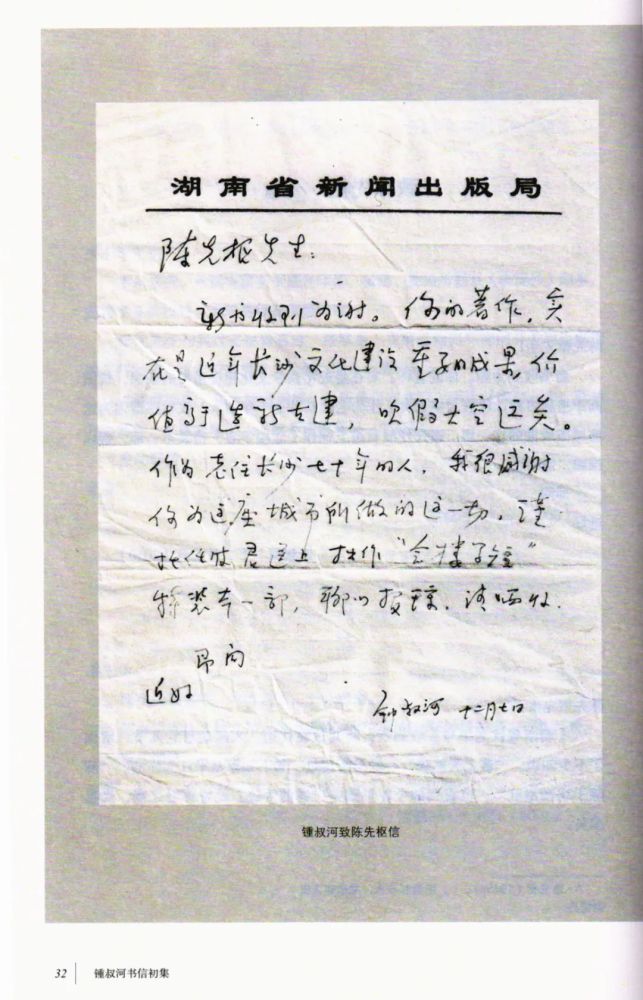 湖南省新闻出版局
陈先枢先生：
新书收到为谢。你的著作，实
在是近年长沙文化建设重要的成果，价
值高于造新古建，吹假大空远矣。
作为老住长沙七十年的人，我很感谢
你为这座城市所做的这一切，谨
托任波君送上拙作“念楼学短”
特装本一部，聊以报琼，请哂收。
即问
近好
钟叔河 十二月七日
锺叔河致陈先枢信
32 锺叔河书信初集